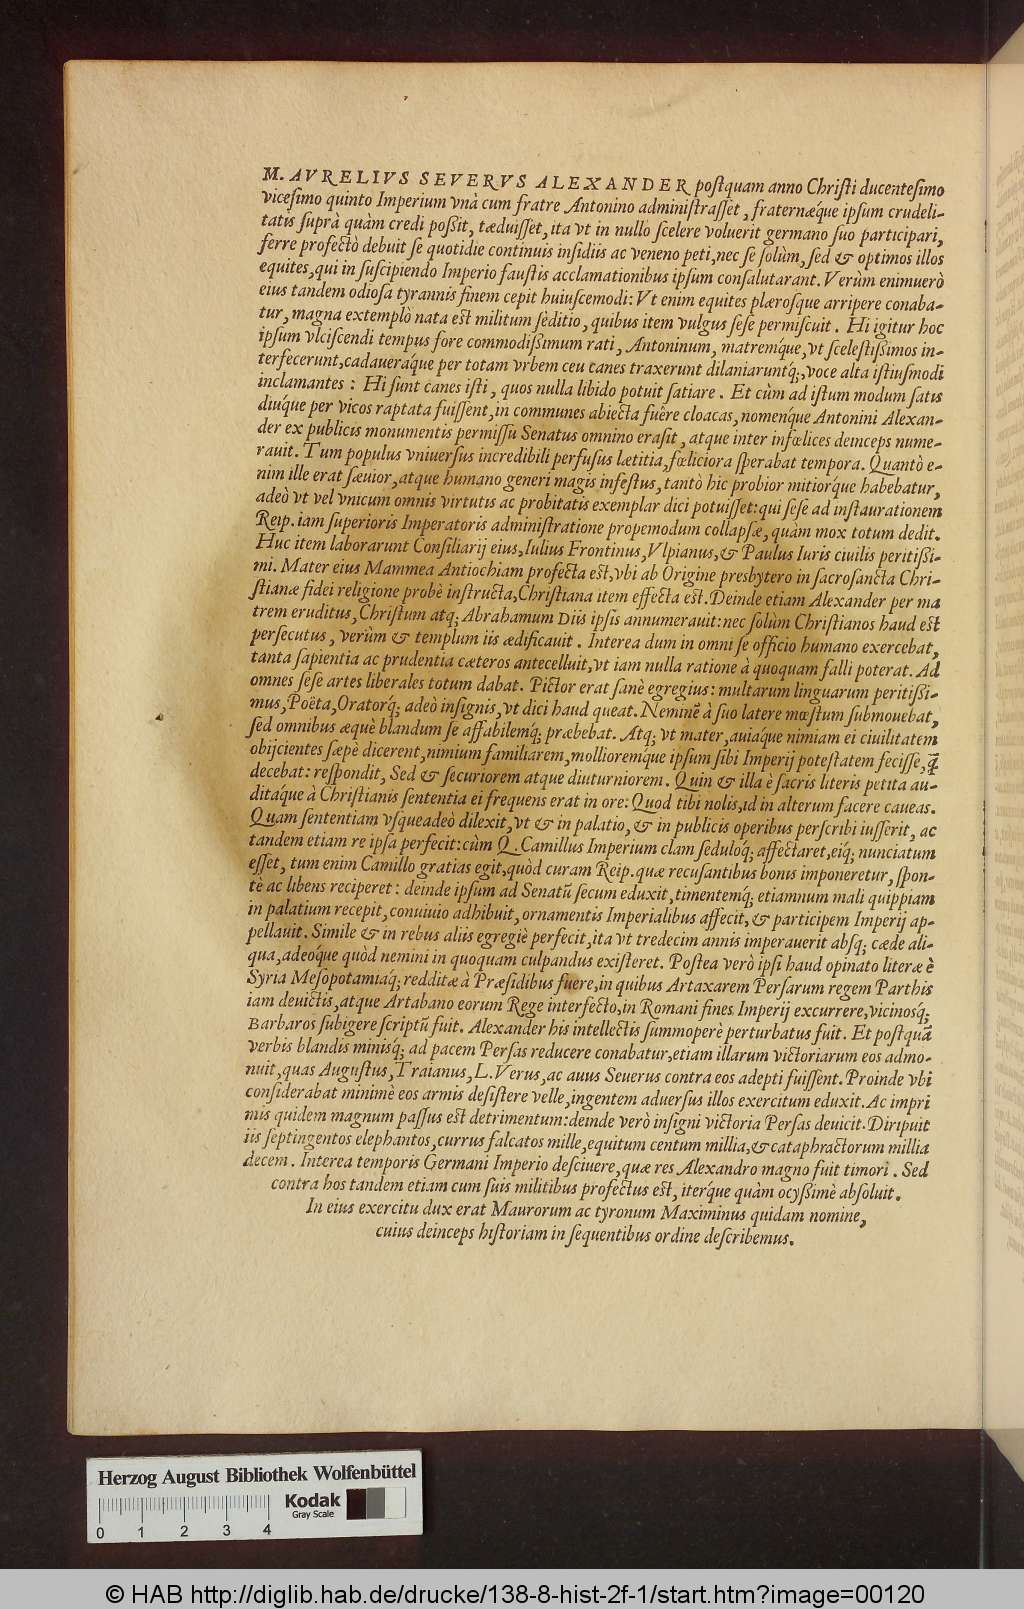 M. AVRELIVS SEVERVS ALEXANDER postquam anno Christi ducentesimo
vicesimo quinto Imperium vnà cum fratre Antonino administrasset, fraternæq́ue ipsum crudeli-
tatis suprà quàm credi poßit, tæduisset, ita vt in nullo scelere voluerit germano suo participari,
ferre profectò debuit se quotidie continuis insidiis ac veneno peti, nec se solùm, sed & optimos illos
equites, qui in suscipiendo Imperio faustis acclamationibus ipsum consalutarant. Verùm enimuerò
eius tandem odiosa tyrannis finem cepit huiuscemodi: Vt enim equites plærosque arripere conaba-
tur, magna extemplò nata est militum seditio, quibus item vulgus sese permiscuit. Hi igitur hoc
ipsum vlciscendi tempus fore commodißimum rati, Antoninum, matremq́ue, vt scelestißimos in-
terfecerunt, cadaueraq́ue per totam vrbem ceu canes traxerunt dilaniaruntq́;, voce alta istiusmodi
inclamantes: Hi sunt canes isti, quos nulla libido potuit satiare. Et cùm ad istum modum satis
diuq́ue per vicos raptata fuissent, in communes abiecta fuêre cloacas, nomenq́ue Antonini Alexan-
der ex publicis monumentis permissu Senatus omnino erasit, atque inter infœlices deinceps nume-
rauit. Tum populus vniuersus incredibili perfusus lætitia, fœliciora sperabat tempora. Quantò e-
nim ille erat sæuior, atque humano generi magis infestus, tantò hic probior mitiorq́ue habebatur,
adeò vt vel vnicum omnis virtutis ac probitatis exemplar dici potuisset: qui sese ad instaurationem
Reip. iam superioris Imperatoris administratione propemodum collapsæ, quàm mox totum dedit.
Huc item laborarunt Consiliarij eius, Iulius Frontinus, Vlpianus, & Paulus Iuris ciuilis peritißi-
mi. Mater eius Mammea Antiochiam profecta est, vbi ab Origine presbytero in sacrosancta Chri-
stianæ fidei religione probè instructa, Christiana item effecta est. Deinde etiam Alexander per ma
trem eruditus, Christum atq; Abrahamum Diis ipsis annumerauit: nec solùm Christianos haud est
persecutus, verùm & templum iis ædificauit. Interea dum in omni se officio humano exercebat,
tanta sapientia ac prudentia cæteros antecelluit, vt iam nulla ratione à quoquam falli poterat. Ad
omnes sese artes liberales totum dabat. Pictor erat sanè egregius: multarum linguarum peritißi-
mus, Poëta, Oratorq́; adeò insignis, vt dici haud queat. Neminẽ à suo latere mœstum submouebat,
sed omnibus æquè blandum se affabilemq́; præbebat. Atq; vt mater, auiaque nimiam ei ciuilitatem
obijcientes sæpè dicerent, nimium familiarem, mollioremq́ue ipsum sibi Imperij potestatem fecisse, q̃
decebat: respondit, Sed & securiorem atque diuturniorem. Quin & illa è sacris literis petita au-
ditaq́ue à Christianis sententia ei frequens erat in ore: Quod tibi nolis, id in alterum facere caueas.
Quam sententiam vsqueadeò dilexit, vt & in palatio, & in publicis operibus perscribi iusserit, ac
tandem etiam re ipsa perfecit: cùm Q. Camillus Imperium clam seduloq́; affectaret, eiq́; nunciatum
esset, tum enim Camillo gratias egit, quòd curam Reip. quæ recusantibus bonis imponeretur, spon-
tè ac libens reciperet: deinde ipsum ad Senatũ secum eduxit, timentemq́; etiamnum mali quippiam
in palatium recepit, conuiuio adhibuit, ornamentis Imperialibus affecit, & participem Imperij ap-
pellauit. Simile & in rebus aliis egregiè perfecit, ita vt tredecim annis imperauerit absq; cæde ali-
qua, adeoq́ue quòd nemini in quoquam culpandus existeret. Postea verò ipsi haud opinato literæ è
Syria Mesopotamiaq́; redditæ à Præsidibus fuere, in quibus Artaxarem Persarum regem Parthis
iam deuictis, atque Artabano eorum Rege interfecto, in Romani fines Imperij excurrere, vicinosq́;
Barbaros subigere scriptũ fuit. Alexander his intellectis summoperè perturbatus fuit. Et postquã
verbis blandis minisq́; ad pacem Persas reducere conabatur, etiam illarum victoriarum eos admo-
nuit, quas Augustus, Traianus, L. Verus, ac auus Seuerus contra eos adepti fuissent. Proinde vbi
considerabat minimè eos armis desistere velle, ingentem aduersus illos exercitum eduxit. Ac impri
mis quidem magnum passus est detrimentum: deinde verò insigni victoria Persas deuicit. Diripuit
iis septingentos elephantos, currus falcatos mille, equitum centum millia, & cataphractorum millia
decem. Interea temporis Germani Imperio desciuere, quæ res Alexandro magno fuit timori. Sed
contra hos tandem etiam cum suis militibus profectus est, iterq́ue quàm ocyßimè absoluit.
In eius exercitu dux erat Maurorum ac tyronum Maximinus quidam nomine,
cuius deinceps historiam in sequentibus ordine describemus.
Herzog August Bibliothek Wolfenbüttel
Kodak
Gray Scale
0 1 2 3 4
© HAB http://diglib.hab.de/drucke/138-8-hist-2f-1/start.htm?image=00120